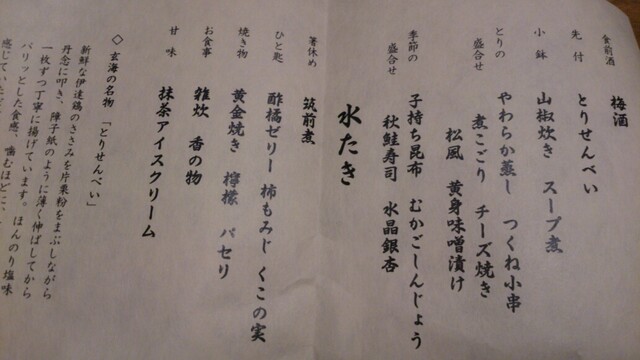 食前酒 梅酒
先付 とりせんべい
小鉢 山椒炊き スープ煮
とりの盛合せ やわらか蒸し つくね小串
煮こごり チーズ焼き
松風 黄身味噌漬け
季節の盛合せ 子持ち昆布 むかごしんじょう
秋鮭寿司 水晶銀杏
水たき
箸休め 筑前煮
ひと匙 酢橘ゼリー 柿もみじ くこの実
焼き物 黄金焼き 檸檬 パセリ
お食事 雑炊 香の物
甘味 抹茶アイスクリーム
◇ 玄海の名物 「とりせんべい」
新鮮な伊達鶏のささみを片栗粉をまぶしながら
丹念に叩き、障子紙のように薄く伸ばしてから
一枚ずつ丁寧に揚げています。ほんのり塩味
パリッとした食感、噛むほどに、
感じていただ